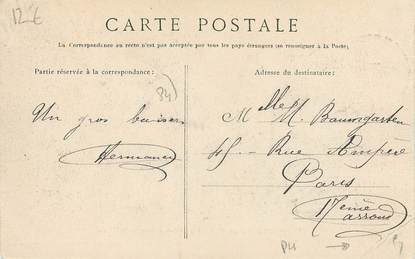 12 €
CARTE POSTALE
La Correspondance au recto n'est pas acceptée par tous les pays étrangers (se renseigner à la Poste)
Partie réservée à la correspondance:
Adresse du destinataire:
84
Un gros baiser
Hermance
Mlle M. Baumgarten
45 Rue Ampère
Paris
17ème
Arrond